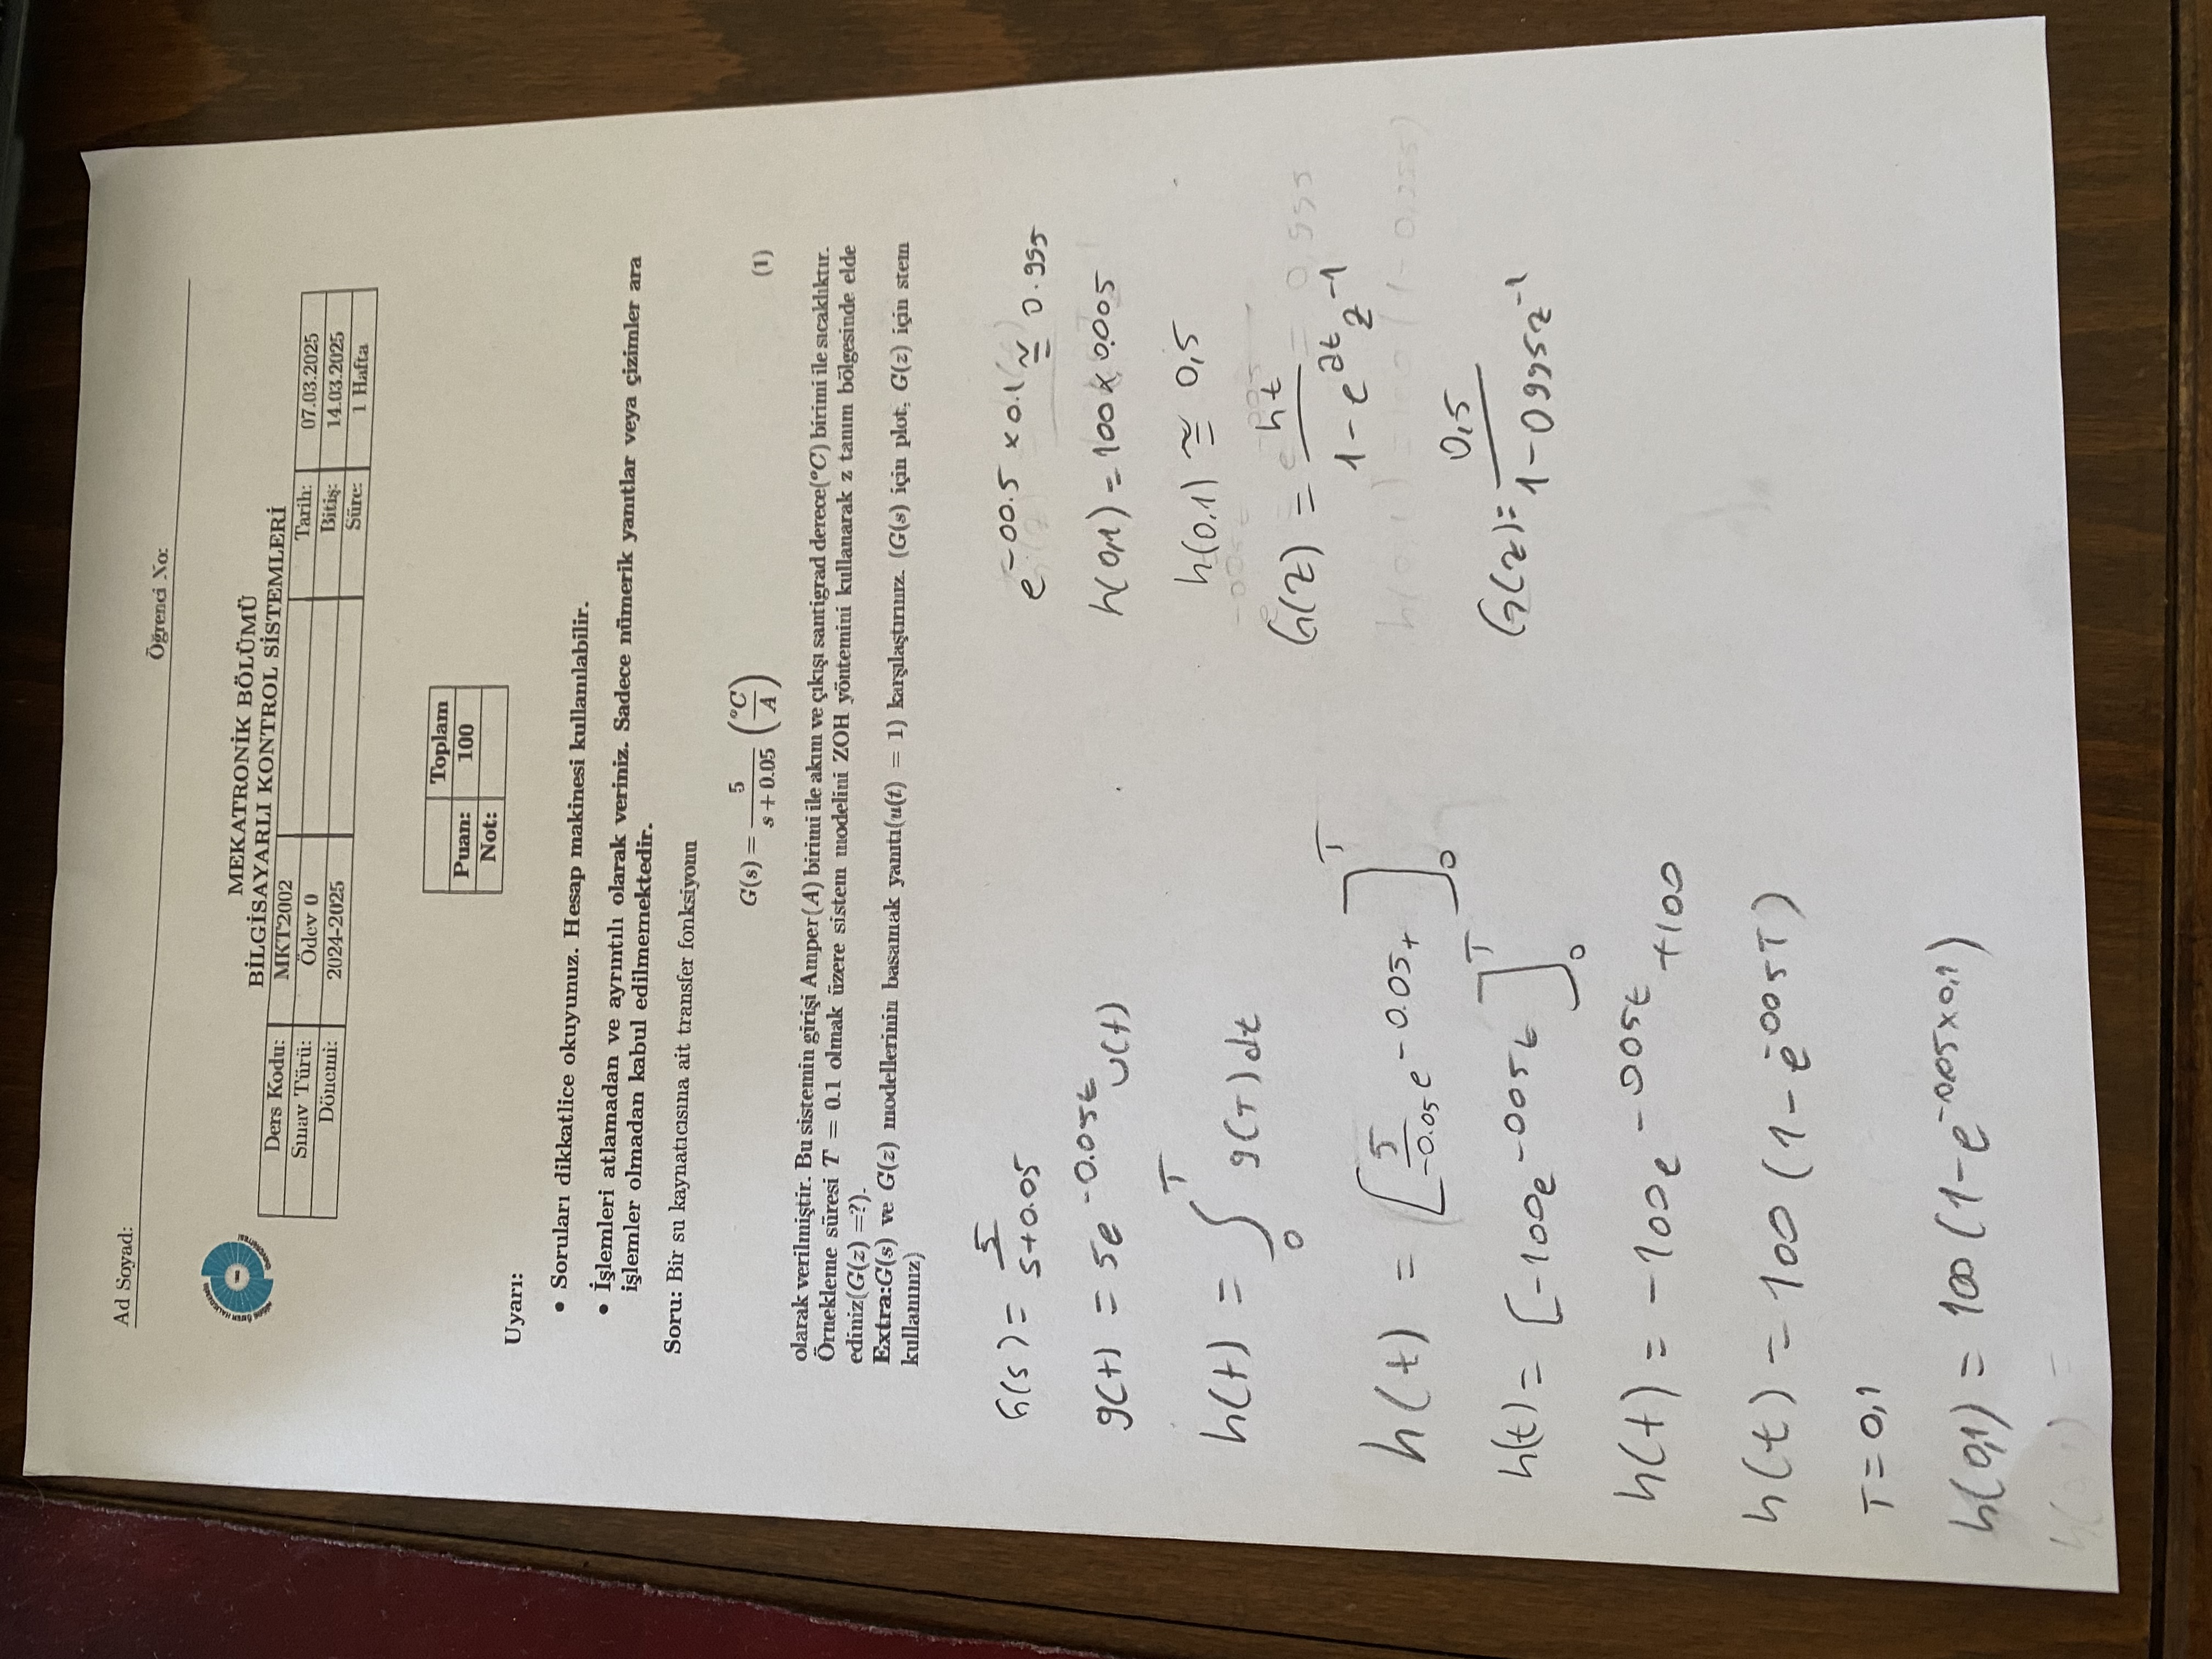 Ad Soyad:
Öğrenci No:
MEKATRONİK BÖLÜMÜ
BİLGİSAYARLI KONTROL SİSTEMLERİ
Ders Kodu: MKT2002 Tarih: 07.03.2025
Sınav Türü: Ödev 0 Bitiş: 14.03.2025
Dönemi: 2024-2025 Süre: 1 Hafta
Toplam
Puan: 100
Not:
Uyarı:
• Soruları dikkatlice okuyunuz. Hesap makinesi kullanılabilir.
• İşlemleri atlamadan ve ayrıntılı olarak veriniz. Sadece nümerik yanıtlar veya çizimler ara
işlemler olmadan kabul edilmemektedir.
Soru: Bir su kaynatıcısına ait transfer fonksiyonu
G(s) = 5 / (s + 0.05) (°C / A) (1)
olarak verilmiştir. Bu sistemin girişi Amper(A) birimi ile akım ve çıkışı santigrad derece(°C) birimi ile sıcaklıktır.
Örnekleme süresi T = 0.1 olmak üzere sistem modelini ZOH yöntemini kullanarak z tanım bölgesinde elde
ediniz(G(z) =?).
Extra:G(s) ve G(z) modellerinin basamak yanıtı(u(t) = 1) karşılaştırınız. (G(s) için plot, G(z) için stem
kullanınız)
G(s) = 5 / (s+0.05)
g(t) = 5e^-0.05t u(t)
h(t) = ∫_0^T g(T)dt
h(t) = [5/-0.05 e^-0.05t]_0^T
h(t) = [-100e^-005t]_0^T
h(t) = -100e^-005t +100
h(t) = 100 (1-e^-005T)
T = 0,1
h(0,1) = 100 (1-e^-0.05×0,1)
h(0,1) =
e^-00.5 × 0.1 ≅ 0.995
h(0,1) = 100 × 0.005
h(0,1) ≅ 0,5
G(z) = ht / (1-e^at z^-1)
G(z) = 0,5 / (1-0995z^-1)